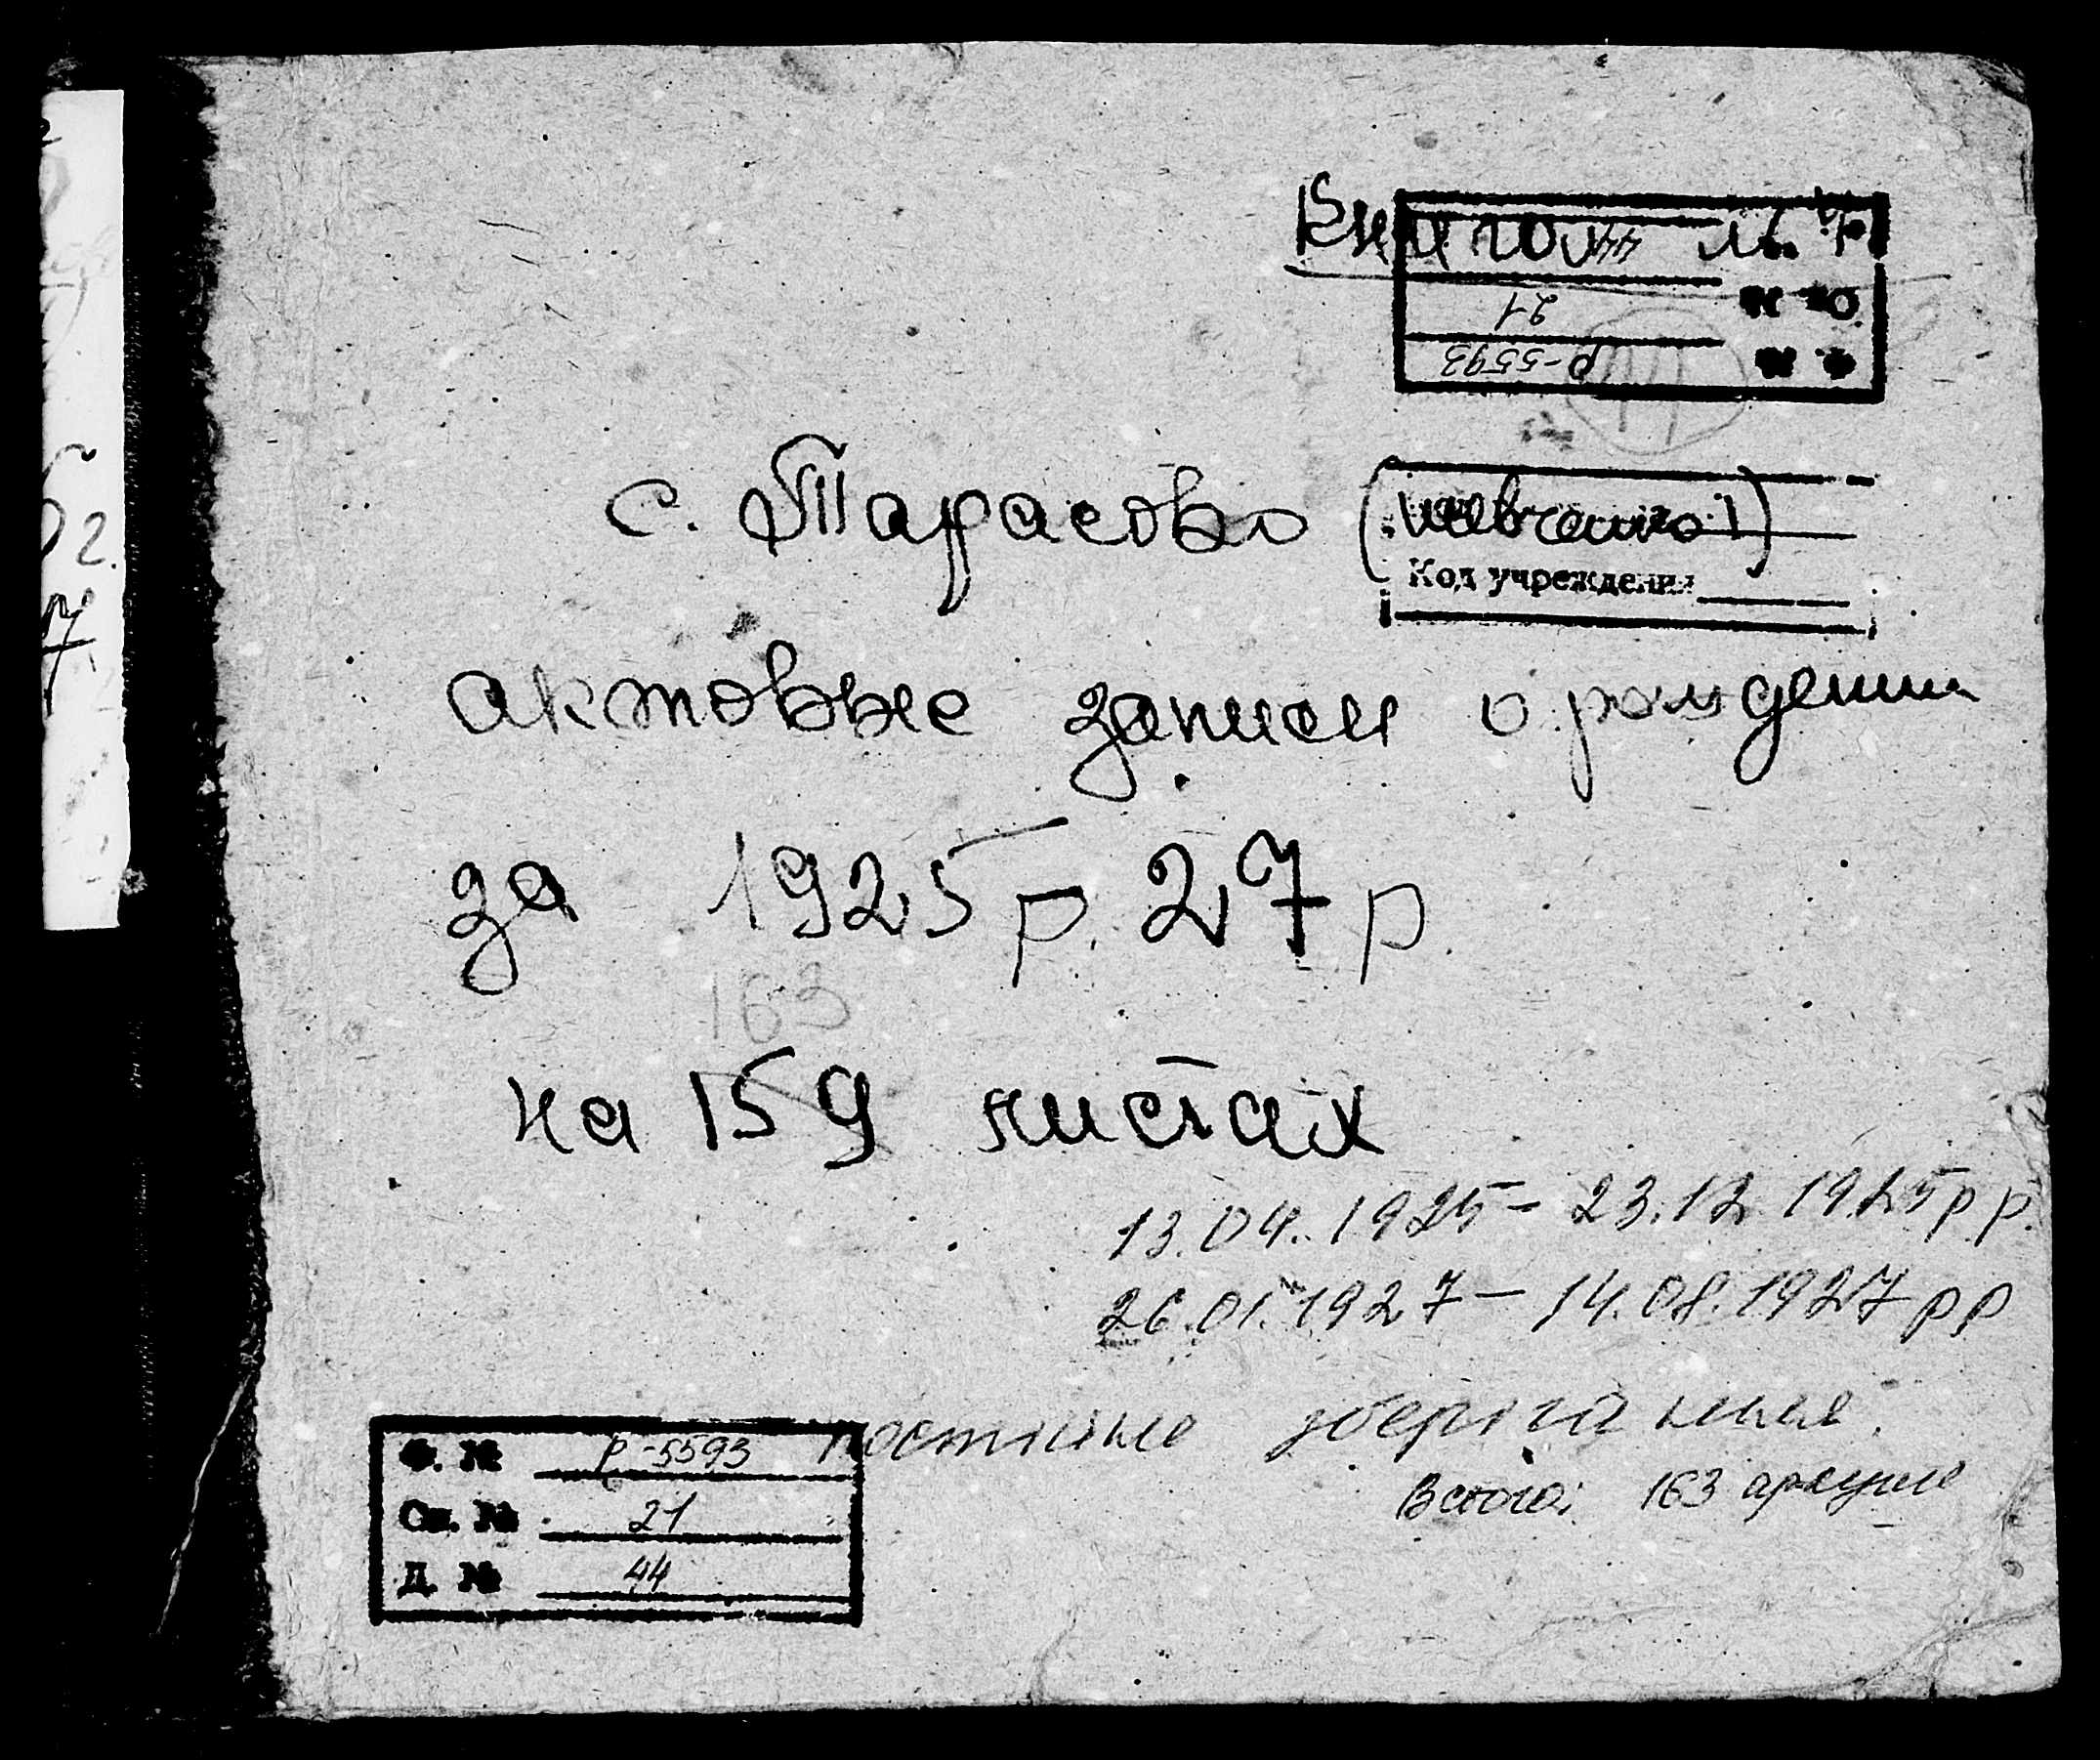 Книга №
Д. № 44
Оп. № 21
Ф. № Р-5593
с. Тарасово (Шевченко)
Код учреждения
актовые записи о рождении
за 1925 р. 27 р.
163
на 159 листах
13.04.1925 - 23.12.1925 р.р.
26.01.1927 - 14.08.1927 рр
постійне зберігання.
Всього: 163 аркуше
Ф. № Р-5593
Оп. № 21
Д. № 44